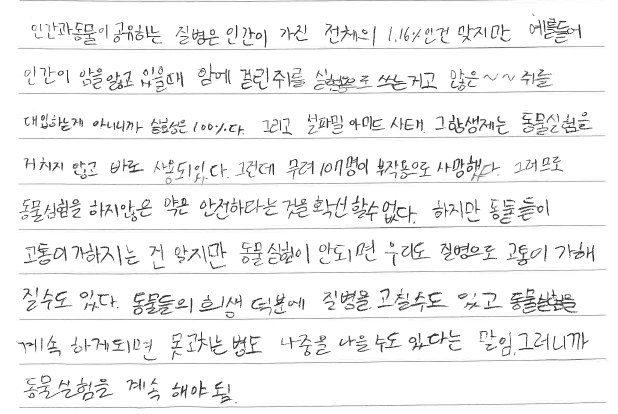 인간과 동물이 공유하는 질병은 인간이 가진 전체의 1.16%인건 맞지만 예를들어
인간이 암을 앓고 있을때 암에 걸린 쥐를 실험으로 쓰는거고 많은~~쥐를
대입하는게 아니니까 실효성은 100%다. 그리고 설파밀아미드 사태. 그 항생제는 동물실험을
거치지 않고 바로 사용되있다. 그런데 무려 107명이 부작용으로 사망했다. 그러므로
동물실험을 하지않은 약은 안전하다는 것을 확신 할수 없다. 하지만 동물들이
고통이 가하지는 건 알지만 동물 실험이 안되면 우리도 질병으로 고통이 가해
질수도 있다. 동물들의 희생 덕분에 질병을 고칠수도 있고 동물실험을
계속 하게되면 못고치는 병도 나중을 나을 수도 있다는 말임. 그러니까
동물실험을 계속 해야 됨.